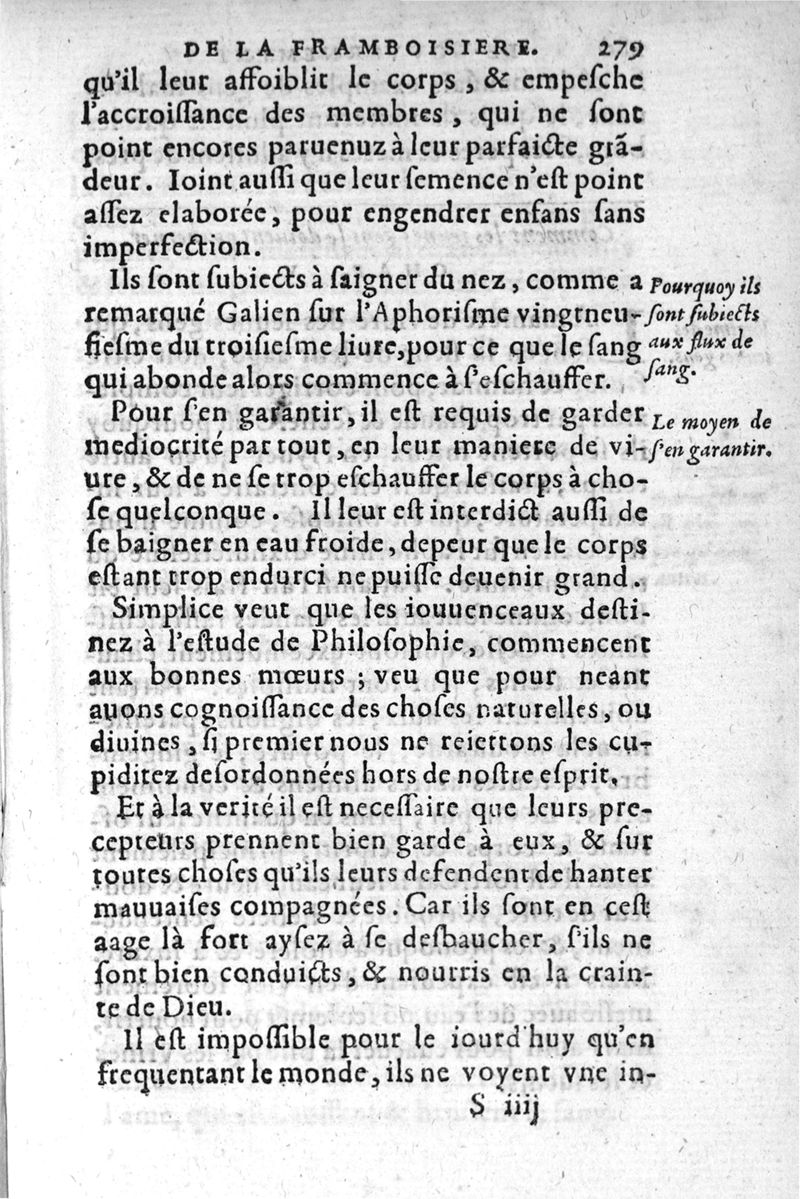 DE LA FRAMBOISIERE. 279
qu'il leur affoiblit le corps, & empeſche
l'accroiſſance des membres, qui ne ſont
point encores paruenuz à leur parfaicte grã-
deur. Ioint auſſi que leur ſemence n'eſt point
aſſez elaborée, pour engendrer enfans ſans
imperfection.
Ils ſont ſubiects à ſaigner du nez, comme a
remarqué Galien ſur l'Aphoriſme vingtneu-
fieſme du troiſieſme liure, pour ce que le ſang
qui abonde alors commence à ſ'eſchauffer.
Pourquoy ils
ſont ſubiects
aux flux de
ſang.
Pour ſ'en garantir, il eſt requis de garder
mediocrité par tout, en leur maniere de vi-
ure, & de ne ſe trop eſchauffer le corps à cho-
ſe quelconque. Il leur eſt interdict auſſi de
ſe baigner en eau froide, depeur que le corps
eſtant trop endurci ne puiſſe deuenir grand.
Le moyen de
ſ'en garantir.
Simplice veut que les iouuenceaux deſti-
nez à l'eſtude de Philoſophie, commencent
aux bonnes mœurs ; veu que pour neant
auons cognoiſſance des choſes naturelles, ou
diuines, ſi premier nous ne reiettons les cu-
piditez deſordonnées hors de noſtre eſprit.
Et à la verité il eſt neceſſaire que leurs pre-
cepteurs prennent bien garde à eux, & ſur
toutes choſes qu'ils leurs defendent de hanter
mauuaiſes compagnées. Car ils ſont en ceſt
aage là fort ayſez à ſe deſbaucher, ſ'ils ne
ſont bien conduicts, & nourris en la crain-
te de Dieu.
Il eſt impoſſible pour le iourd'huy qu'en
frequentant le monde, ils ne voyent vne in-
S iiij